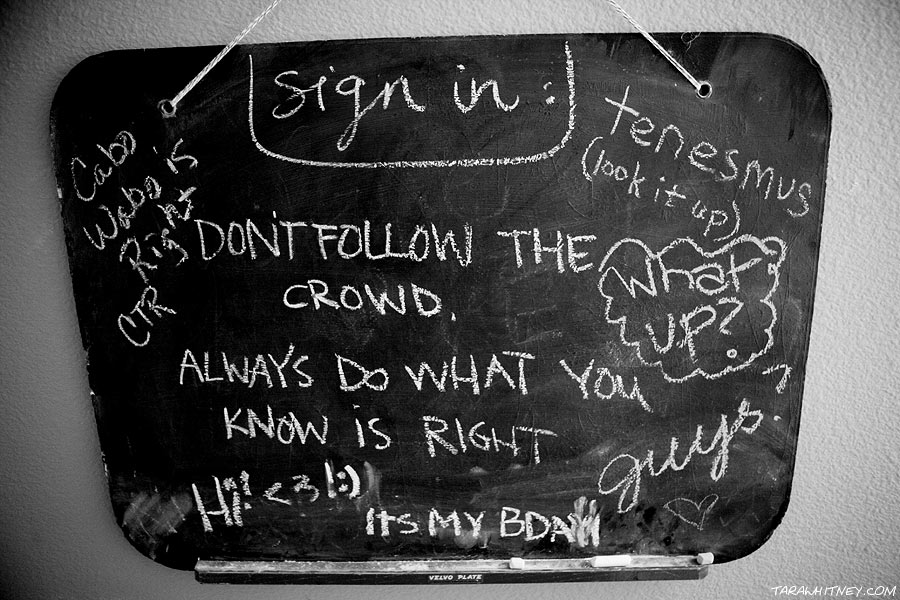 sign in :
tenesmus
(look it up)
Cabo
Wabo is
Right
CTR
DON'T FOLLOW THE
CROWD.
What
UP?
ALWAYS DO WHAT YOU
KNOW IS RIGHT
guys.
Hi! <3 !:)
ITS MY BDAY
VELVO PLATE
TARAWHITNEY.COM